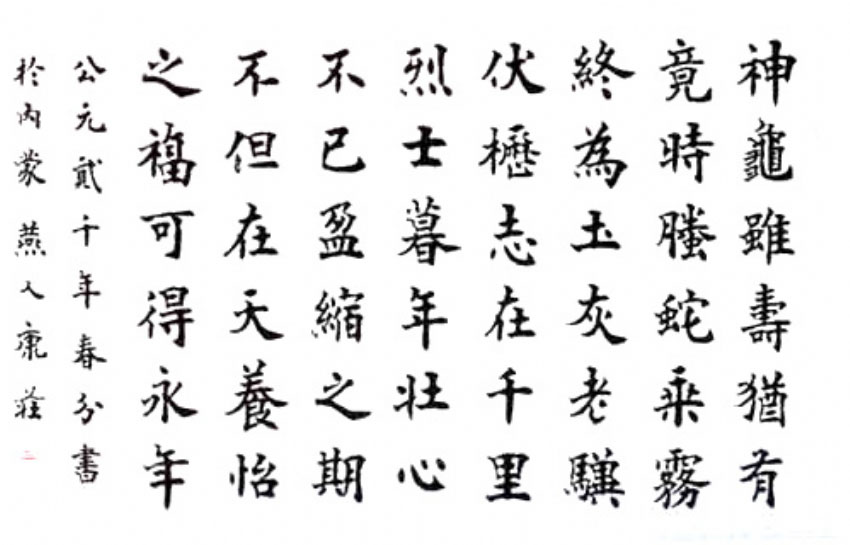 神龜雖壽猶有
竟時螣蛇乘霧
終為土灰老驥
伏櫪志在千里
烈士暮年壯心
不已盈縮之期
不但在天養怡
之福可得永年
公元貳千年春分書
於內蒙燕人康莊